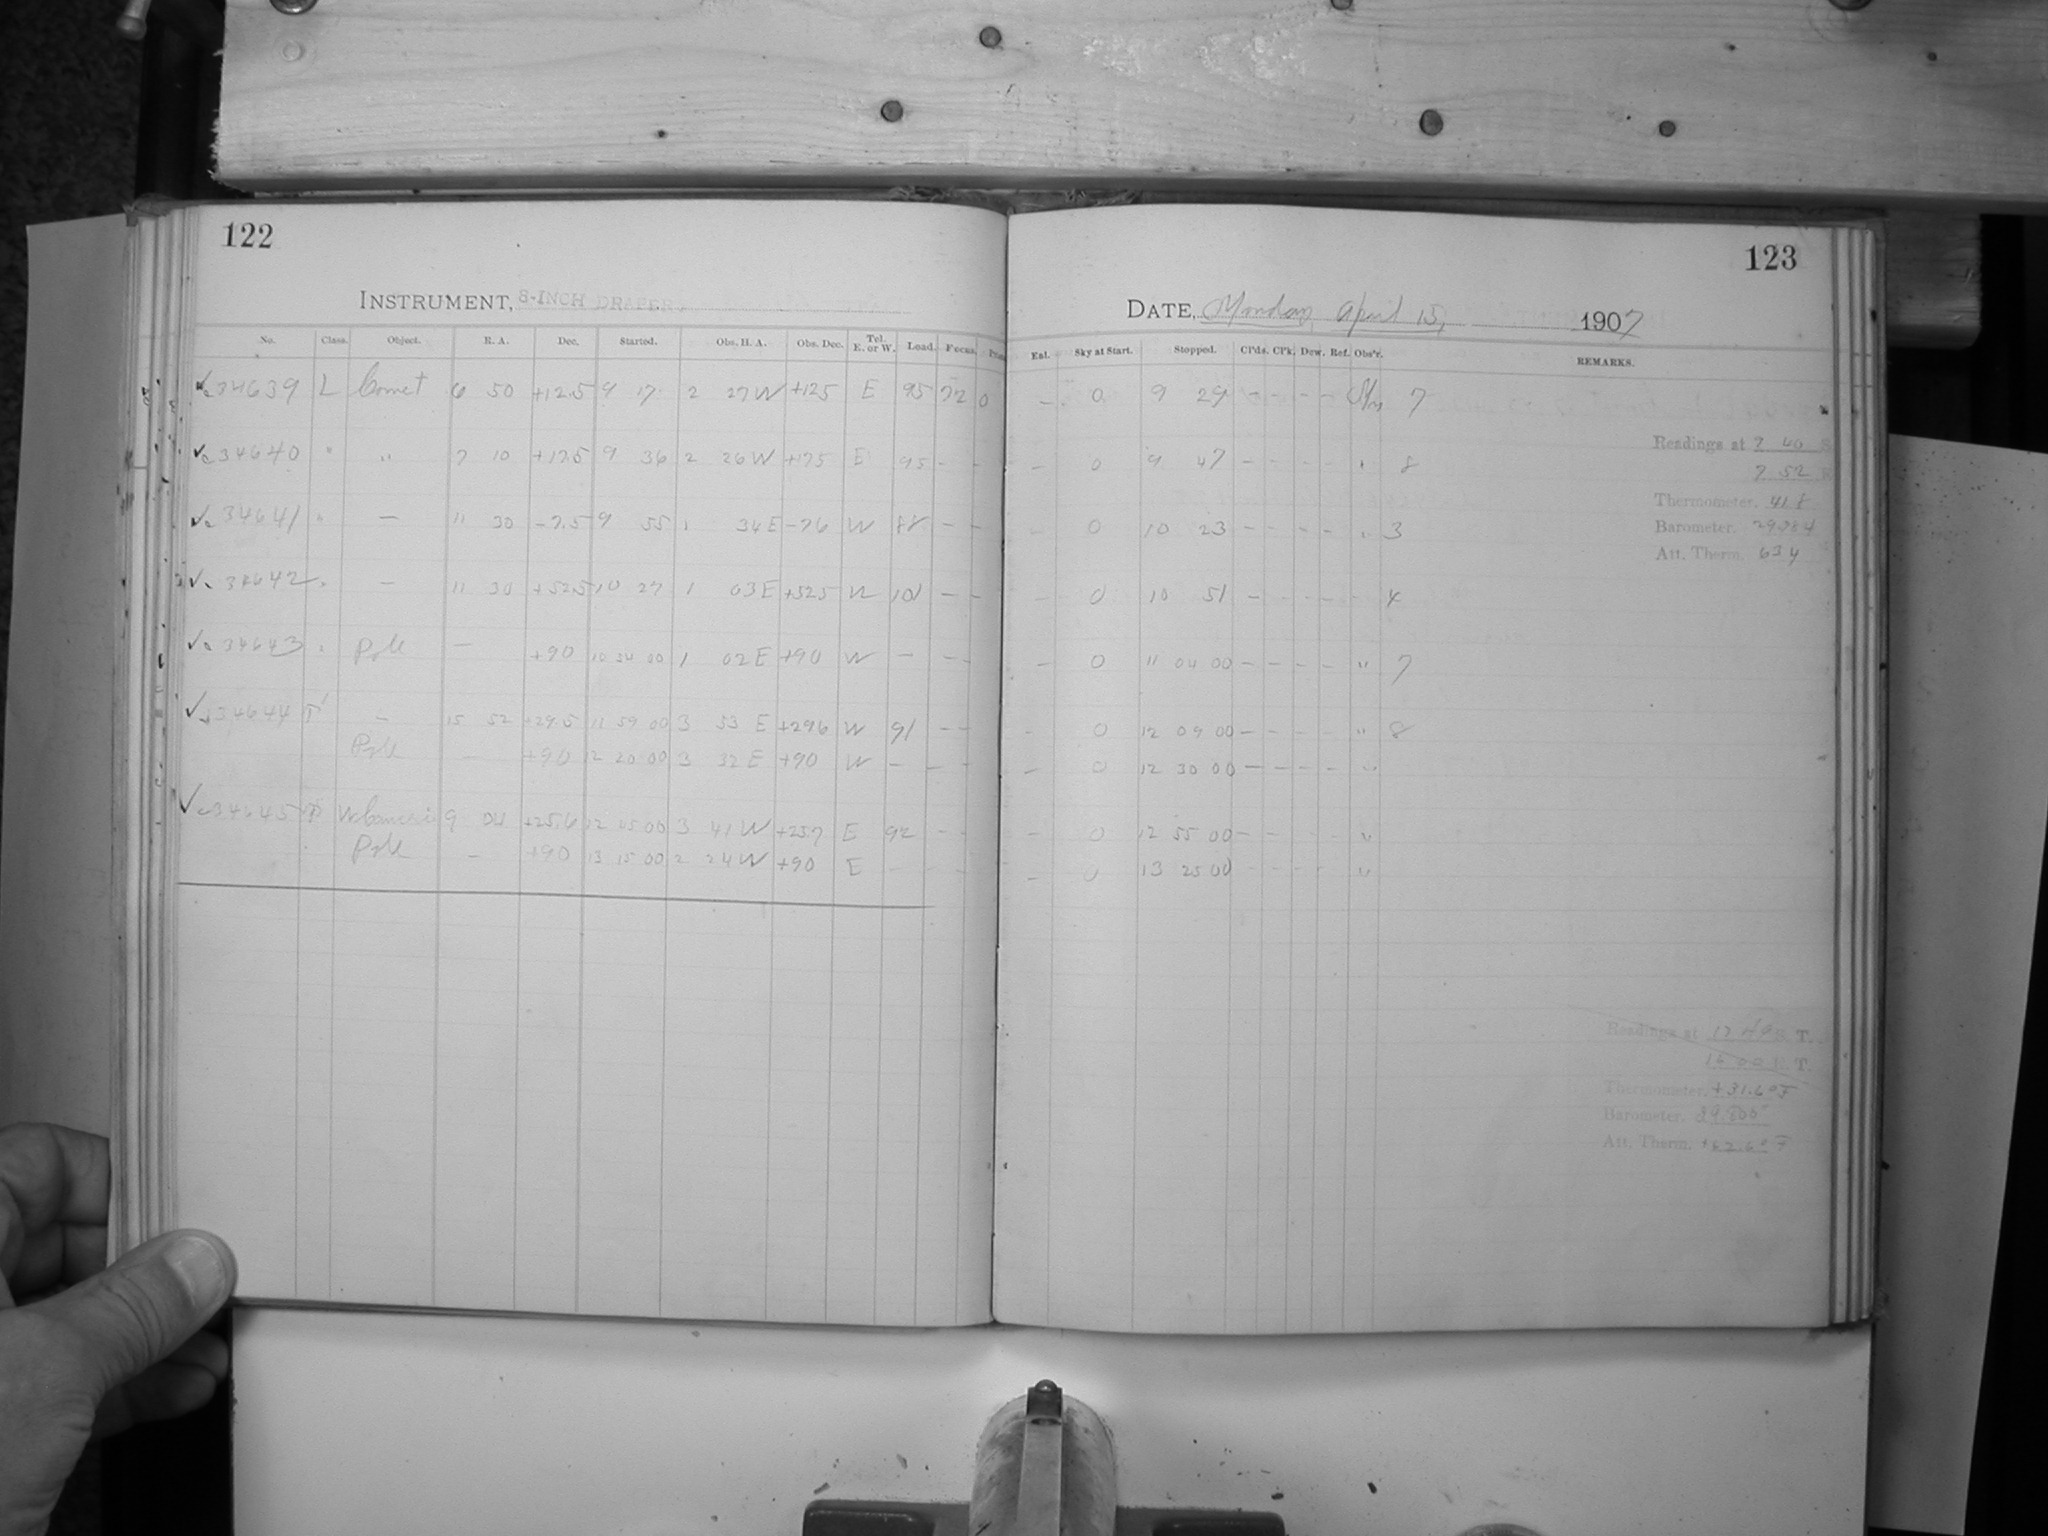 122
INSTRUMENT, 8-INCH DRAPER,
No. Class. Object. R. A. Dec. Started. Obs. H. A. Obs. Dec. Tel. E. or W. Load. Focus.
34639 L Comet 6 50 +12.5 9 17 2 27 W +125 E 95 72 0
34640 " " 7 10 +17.5 9 36 2 26 W +175 E 95 - -
34641 " — 11 30 -7.5 9 55 1 34 E -76 W 88 - -
34642 " — 11 30 +52.5 10 27 1 03 E +525 W 101 - -
34643 " Pole — +90 10 34 00 1 02 E +90 W — - -
34644 — 15 52 +29.5 11 59 00 3 53 E +296 W 91 - -
Pole — +90 12 20 00 3 32 E +90 W — - -
34645 9 04 +25.6 12 45 00 3 41 W +257 E 92 - -
Pole — +90 13 15 00 2 24 W +90 E
123
DATE, Monday, April 15, 1907
Est. Sky at Start. Stopped. Cl'ds. Cl'k. Dew. Ref. Obs'r. REMARKS.
- 0 9 29 - - - - 7
- 0 9 47 - - - - " 8
- 0 10 23 - - - - " 3
- 0 10 51 - - - - 4
- 0 11 04 00 - - - - " 7
- 0 12 09 00 - - - - " 8
- 0 12 30 00 - - - - "
- 0 12 55 00 - - - - "
- 0 13 25 00 - - - - "
Readings at 7 40
7 52
Thermometer. 41.8
Barometer. 29.984
Att. Therm. 63.4
Readings at T.
T.
Thermometer. +31.6°F
Barometer. 29.800
Att. Therm. +62.6°F